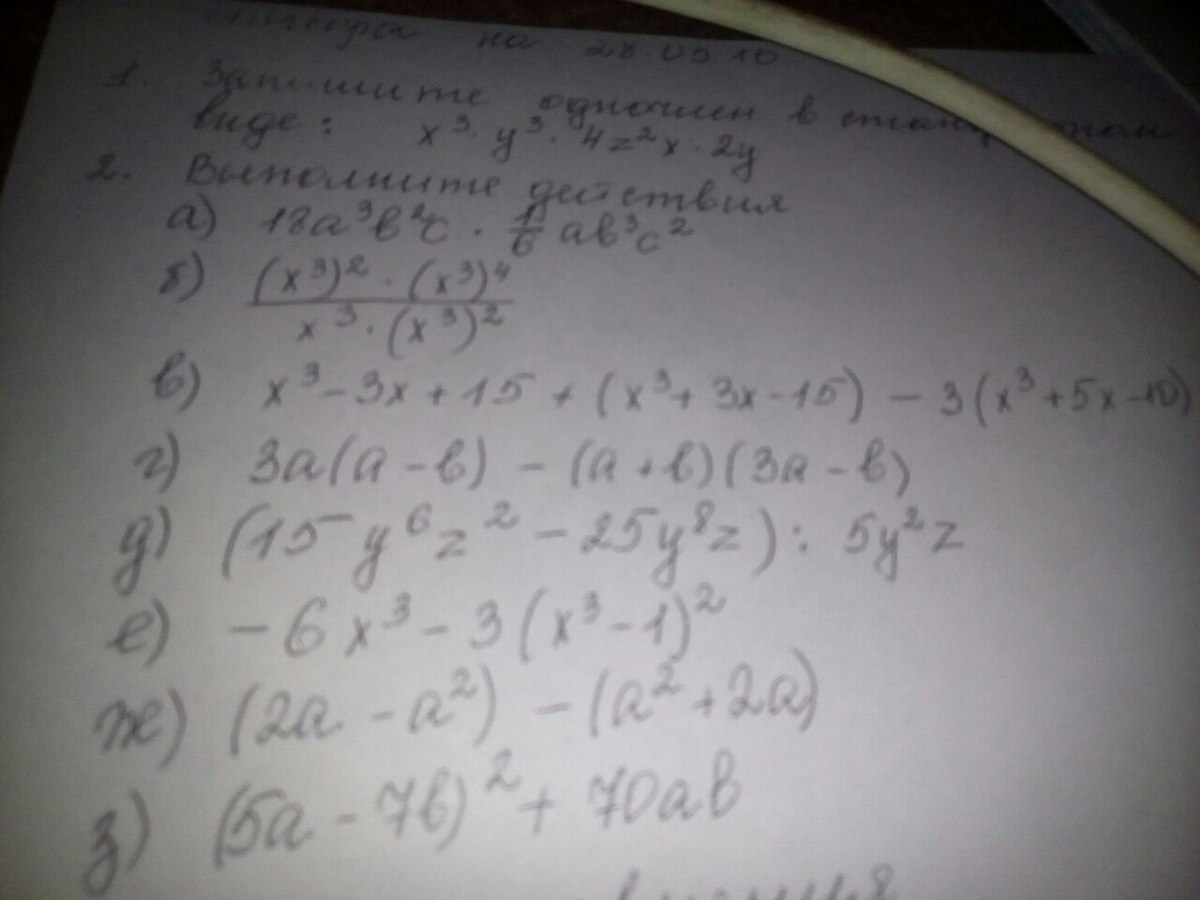 на 28.05.10
1. Запишите одночлен в
виде: x³ · y³ · 4z²x · 2y
2. Выполните действия
а) 18a³b²c · 1/6 ab³c²
б) (x³)² · (x³)⁴ / x³ · (x³)²
в) x³ - 3x + 15 + (x³ + 3x - 15) - 3(x³ + 5x - 10)
г) 3a(a - b) - (a + b)(3a - b)
д) (15y⁶z² - 25y⁸z) : 5y²z
е) - 6x³ - 3(x³ - 1)²
ж) (2a - a²) - (a² + 2a)
з) (5a - 7b)² + 70ab